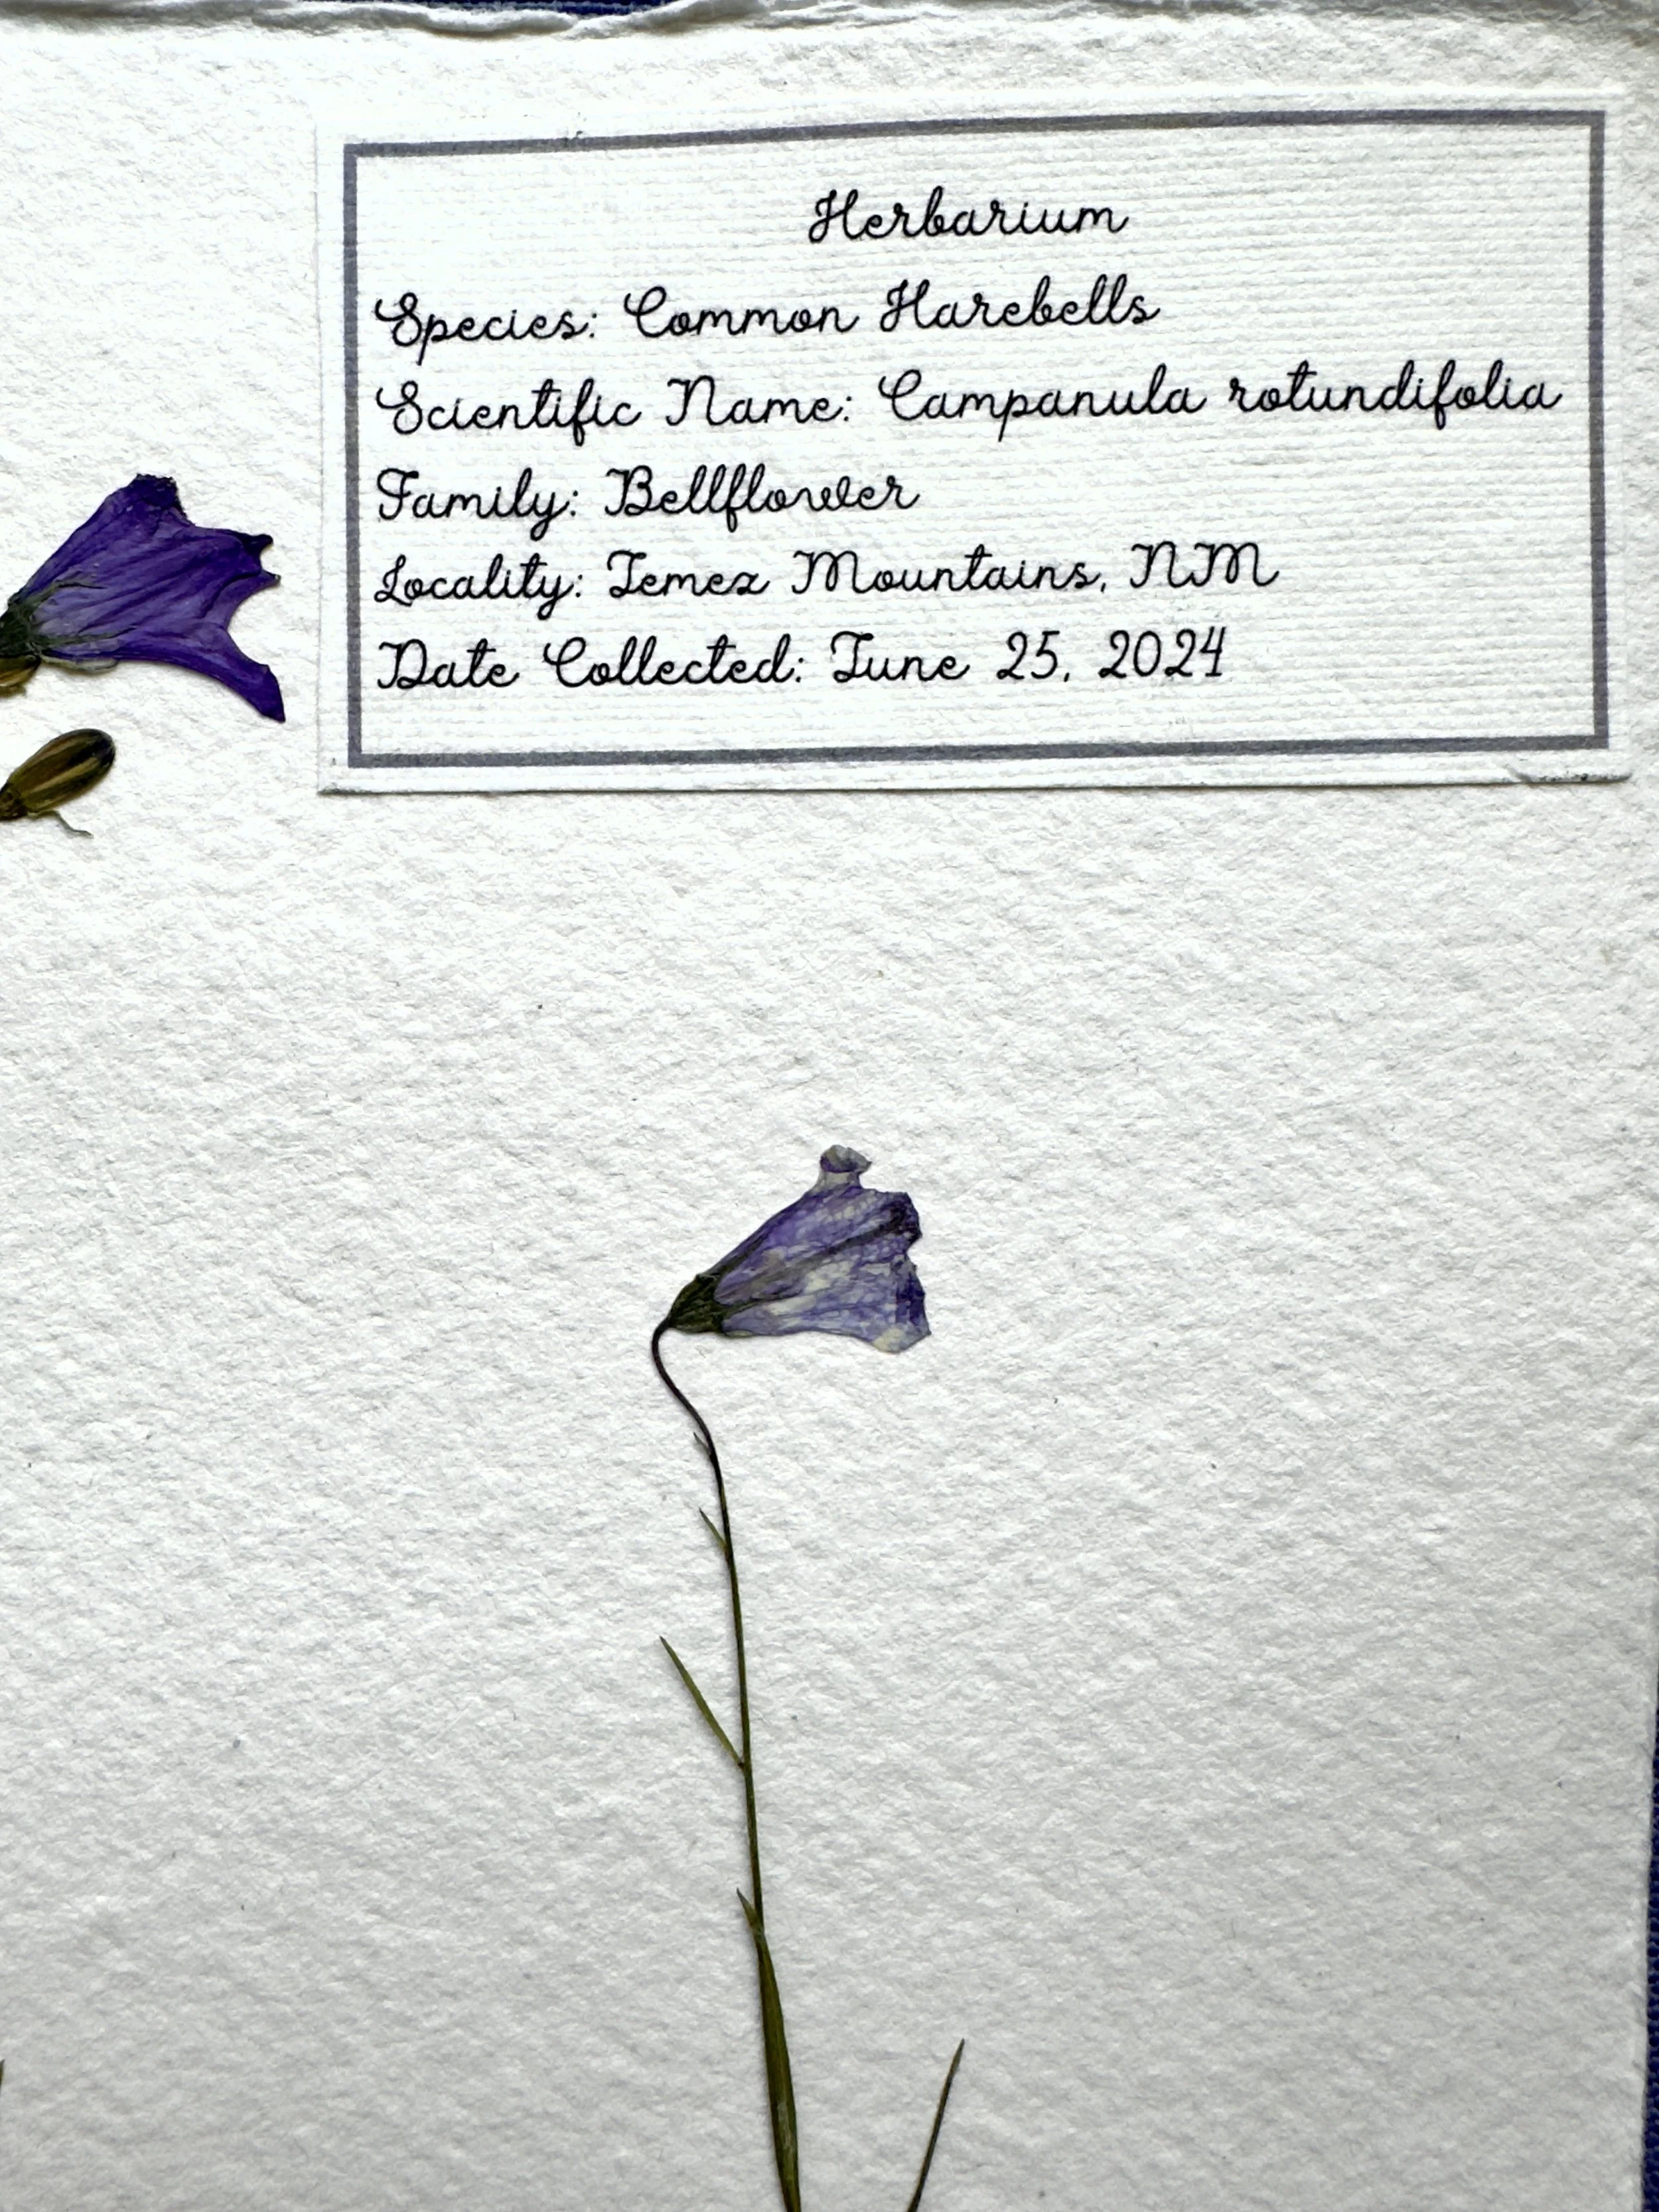 Herbarium
Species: Common Harebells
Scientific Name: Campanula rotundifolia
Family: Bellflower
Locality: Jemez Mountains, NM
Date Collected: June 25, 2024